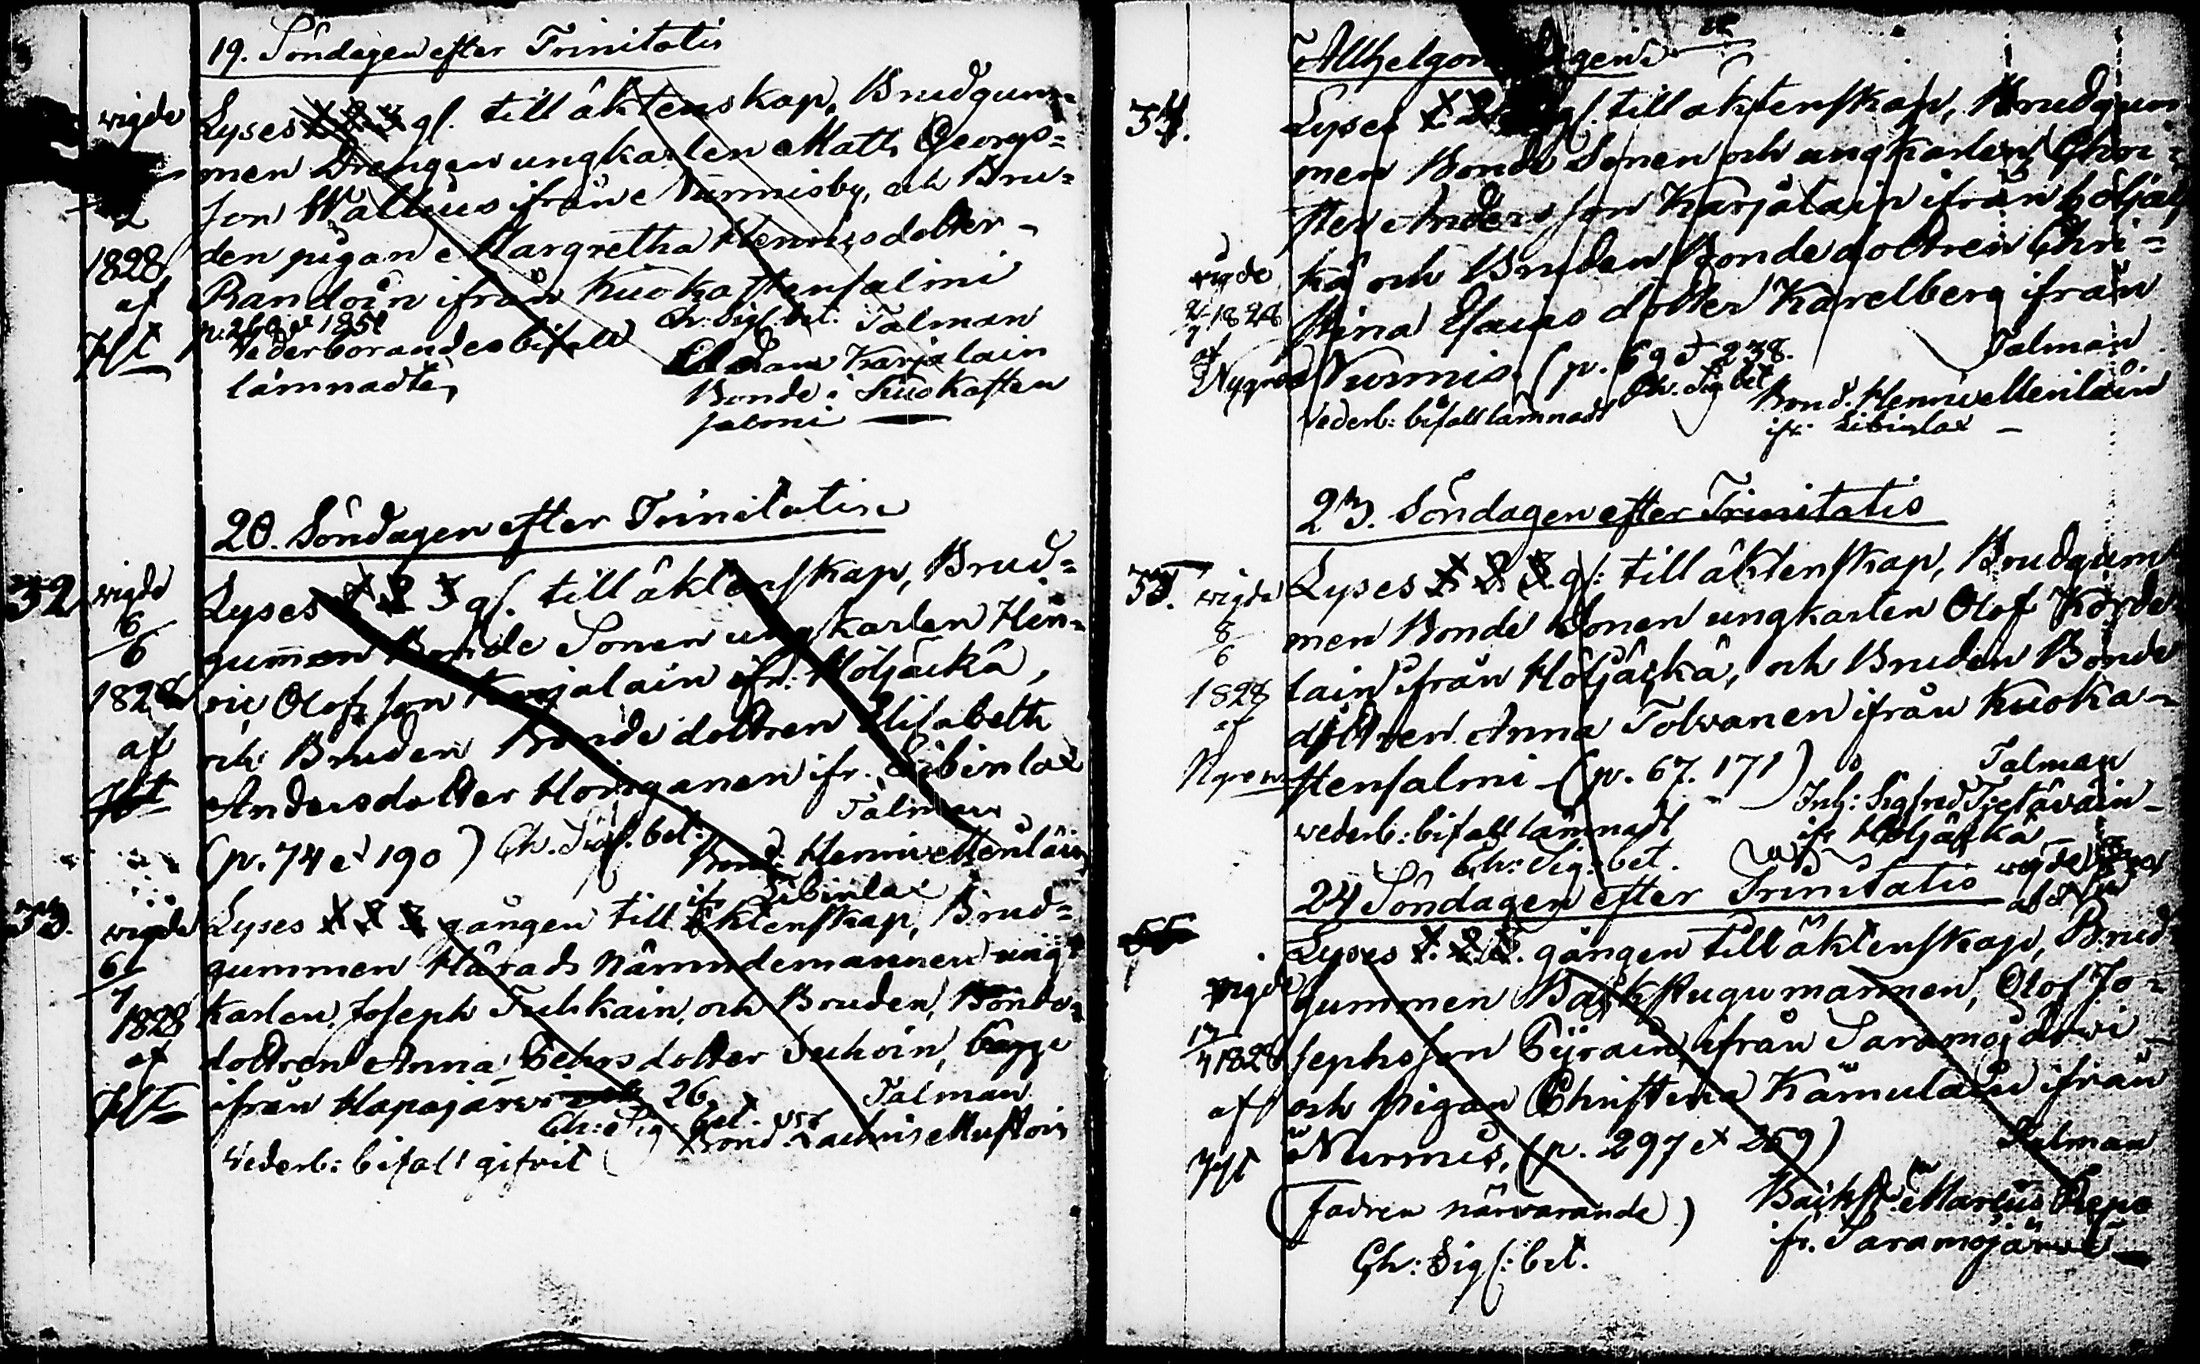 19. Söndagen efter Trinitatis
wigde
2
1828
af
Lyses 1 2 3 gl. till äktenskap, Brudgum=
men Drengen ungkarlen Math Georgs=
son Wallius ifrån Nurmisby, och Bru=
den pigan Margretha Hennisdotter
Randoin ifrån Kuokastensalmi
p. 268 et 1851 Ch. Sigf. bet. Talman
Vederborandes bifall Adam Karjalain
lämnadte, Bonde i Kuokasten
salmi
20. Söndagen efter Trinitatis
32
wigde
6/6
1828
af
Lyses 1 2 3 gl. till äktenskap, Brud=
gummen Bonde Sonen ungkarlen Hen=
ric Olofsson Karjalain ifr: Höljäckä,
och Bruden Bonde dottren Elisabeth
Andersdotter Hoirganen ifr. Libinlax
(p. 74 et 190) Ch. Sigf. bet: Talman
Bond: Henric Meriläin
ifr Libinlax
33.
wigde
6/7
1828
af
Lyses 1 2 3 gången till äktenskap, Brud=
gummen Härads nämndemannen ung
karlen Joseph Turkain, och Bruden, Bonde
dottren Anna Pehrsdotter Juhoin, bägge
ifrån Hapajärvi 26. Talman
Ch: Sig: bet. Bond Mustoin
Vederb: bifall gifvit
34.
wigde
2/7 1828
af
Nygren
Lyses 1 2 gl. till äktenskap, Brudgum
men Bonde Sonen och ungkarlen Chri=
ster Andersson Karjalain ifrån Höljäc
kä och Bruden Bonde dottren Chri=
stina Esaias dotter Karelberg ifrån
Nurmis. (p. 69 et 238. Talman
Vederb: bifall lämnadt Ch. Sig bet Bond. Henric Meriläin
ifr. Libinlax
23. Söndagen efter Trinitatis
35. wigde
8/6
1828
af
Lyses 1. 2. 3 gl: till äktenskap, Brudgum
men Bonde Sonen ungkarlen Olof Korde
lain ifrån Höljäckä, och Bruden Bonde
dottren Anna Tolvanen ifrån Kuoka=
stensalmi (p. 67. 171) Talman
vederb: bifall lämnadt Inh: Sigfred
Ch: Sig: bet. ifr Höljäckä
24 Söndagen efter Trinitatis wigde
wigde
17/4 1828
af
Lyses 1. 2. 3. gången till äktenskap, Brud
gummen Backstugu mannen, Olof Jo=
sephsson Pyräin, ifrån Saramojärwi
och pigan Christina Kämuläin ifrån
Nurmis, (p. 297 et 269) Talman
(fadren närvarande) Backst. Marcus Repo
Ch: Sigf: bet. ifr. Saramojärwi